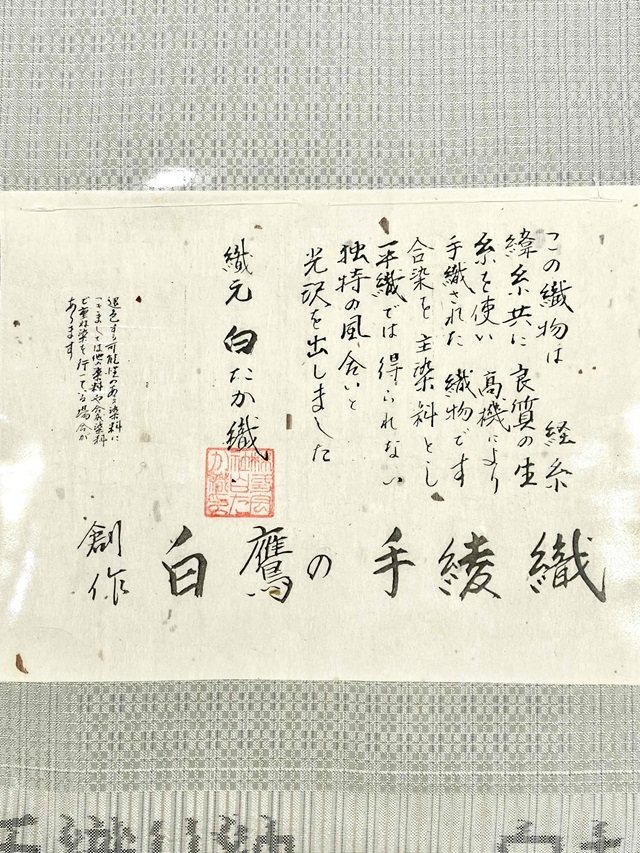 この織物は 経糸
緯糸共に良質の生
糸を使い 高機により
手織された 織物です
合染を 主染料とし
手織では得られない
独特の風合いと
光沢を出しました
織元 白たか織
退色する可能性のある染料に
つきましては他の染料や合成染料
で重ね染を行っている場合が
あります
創作 白鷹の手綾織